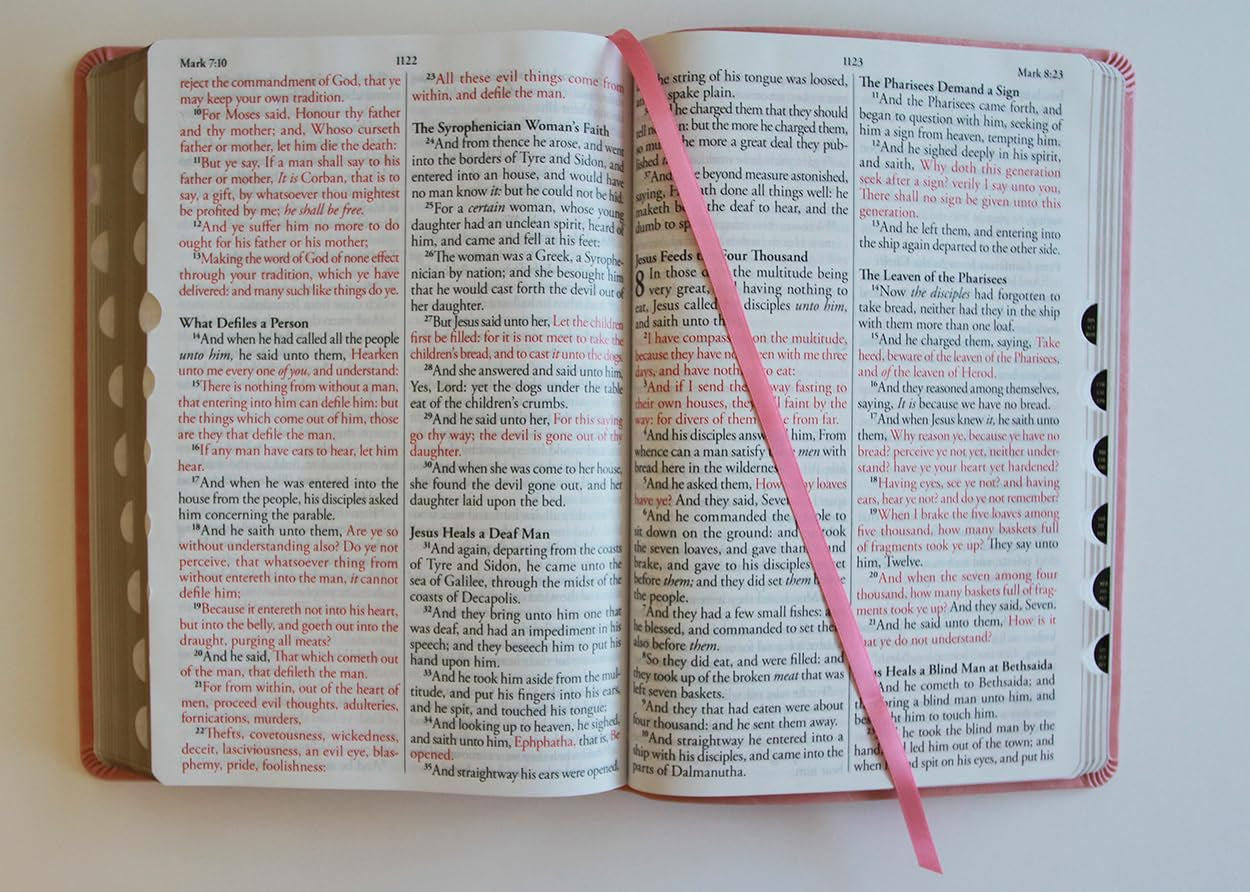 Mark 7:10
1122
reject the commandment of God, that ye
may keep your own tradition.
10For Moses said, Honour thy father
and thy mother; and, Whoso curseth
father or mother, let him die the death:
11But ye say, If a man shall say to his
father or mother, It is Corban, that is to
say, a gift, by whatsoever thou mightest
be profited by me; he shall be free.
12And ye suffer him no more to do
ought for his father or his mother;
13Making the word of God of none effect
through your tradition, which ye have
delivered: and many such like things do ye.
What Defiles a Person
14And when he had called all the people
unto him, he said unto them, Hearken
unto me every one of you, and understand:
15There is nothing from without a man,
that entering into him can defile him: but
the things which come out of him, those
are they that defile the man.
16If any man have ears to hear, let him
hear.
17And when he was entered into the
house from the people, his disciples asked
him concerning the parable.
18And he saith unto them, Are ye so
without understanding also? Do ye not
perceive, that whatsoever thing from
without entereth into the man, it cannot
defile him;
19Because it entereth not into his heart,
but into the belly, and goeth out into the
draught, purging all meats?
20And he said, That which cometh out
of the man, that defileth the man.
21For from within, out of the heart of
men, proceed evil thoughts, adulteries,
fornications, murders,
22Thefts, covetousness, wickedness,
deceit, lasciviousness, an evil eye, blas-
phemy, pride, foolishness:
23All these evil things come from
within, and defile the man.
The Syrophenician Woman's Faith
24And from thence he arose, and went
into the borders of Tyre and Sidon, and
entered into an house, and would have
no man know it: but he could not be hid.
25For a certain woman, whose young
daughter had an unclean spirit, heard of
him, and came and fell at his feet:
26The woman was a Greek, a Syrophe-
nician by nation; and she besought him
that he would cast forth the devil out of
her daughter.
27But Jesus said unto her, Let the children
first be filled: for it is not meet to take the
children's bread, and to cast it unto the dogs.
28And she answered and said unto him,
Yes, Lord: yet the dogs under the table
eat of the children's crumbs.
29And he said unto her, For this saying
go thy way; the devil is gone out of thy
daughter.
30And when she was come to her house,
she found the devil gone out, and her
daughter laid upon the bed.
Jesus Heals a Deaf Man
31And again, departing from the coasts
of Tyre and Sidon, he came unto the
sea of Galilee, through the midst of the
coasts of Decapolis.
32And they bring unto him one that
was deaf, and had an impediment in his
speech; and they beseech him to put his
hand upon him.
33And he took him aside from the mul-
titude, and put his fingers into his ears,
and he spit, and touched his tongue;
34And looking up to heaven, he sighed,
and saith unto him, Ephphatha, that is, Be
opened.
35And straightway his ears were opened,
1123
Mark 8:23
the string of his tongue was loosed,
spake plain.
he charged them that they should
tell no but the more he charged them,
so the more a great deal they pub-
lished
37And beyond measure astonished,
saying, He hath done all things well: he
maketh the deaf to hear, and the
dumb to
Jesus Feeds the Four Thousand
8 In those the multitude being
very great, having nothing to
eat, Jesus called disciples unto him,
and saith unto
2I have compassion on the multitude,
because they have now been with me three
days, and have nothing to eat:
3And if I send them away fasting to
their own houses, they will faint by the
way: for divers of them came from far.
4And his disciples answered him, From
whence can a man satisfy men with
bread here in the wilderness
5And he asked them, How many loaves
have ye? And they said, Seven
6And he commanded the people to
sit down on the ground: and took
the seven loaves, and gave thanks, and
brake, and gave to his disciples set
before them; and they did set them before
the people.
7And they had a few small fishes:
he blessed, and commanded to set them
also before them.
8So they did eat, and were filled: and
they took up of the broken meat that was
left seven baskets.
9And they that had eaten were about
four thousand: and he sent them away.
10And straightway he entered into a
ship with his disciples, and came into the
parts of Dalmanutha.
The Pharisees Demand a Sign
11And the Pharisees came forth, and
began to question with him, seeking of
him a sign from heaven, tempting him.
12And he sighed deeply in his spirit,
and saith, Why doth this generation
seek after a sign? verily I say unto you,
There shall no sign be given unto this
generation.
13And he left them, and entering into
the ship again departed to the other side.
The Leaven of the Pharisees
14Now the disciples had forgotten to
take bread, neither had they in the ship
with them more than one loaf.
15And he charged them, saying, Take
heed, beware of the leaven of the Pharisees,
and of the leaven of Herod.
16And they reasoned among themselves,
saying, It is because we have no bread.
17And when Jesus knew it, he saith unto
them, Why reason ye, because ye have no
bread? perceive ye not yet, neither under-
stand? have ye your heart yet hardened?
18Having eyes, see ye not? and having
ears, hear ye not? and do ye not remember?
19When I brake the five loaves among
five thousand, how many baskets full
of fragments took ye up? They say unto
him, Twelve.
20And when the seven among four
thousand, how many baskets full of frag-
ments took ye up? And they said, Seven.
21And he said unto them, How is it
that ye do not understand?
Jesus Heals a Blind Man at Bethsaida
And he cometh to Bethsaida; and
bring a blind man unto him, and
him to touch him.
23 he took the blind man by the
hand led him out of the town; and
when spit on his eyes, and put his